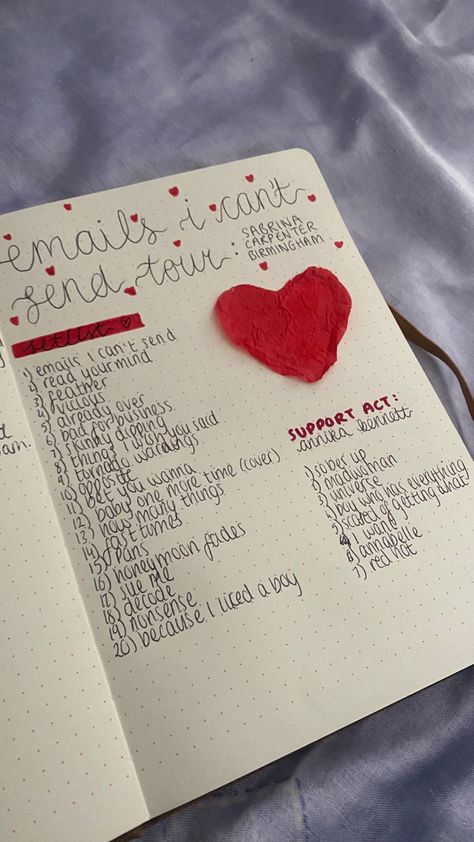 emails i can't
send tour:
SABRINA
CARPENTER
BIRMINGHAM
setlist ♡
1) emails I can't send
2) read your mind
3) feather
4) vicious
5) already over
6) bad for business
7) skinny dipping
8) things I wish you said
9) tornado warnings
10) opposite
11) bet you wanna
12) baby one more time (cover)
13) how many things
14) fast times
15) paris
16) honeymoon fades
17) sue me
18) decode
19) nonsense
20) because I liked a boy
SUPPORT ACT:
annika bennett
1) sober up
2) madwoman
3) universe
4) boy who has everything
5) scared of getting what
I want
6) annabelle
7) red hot